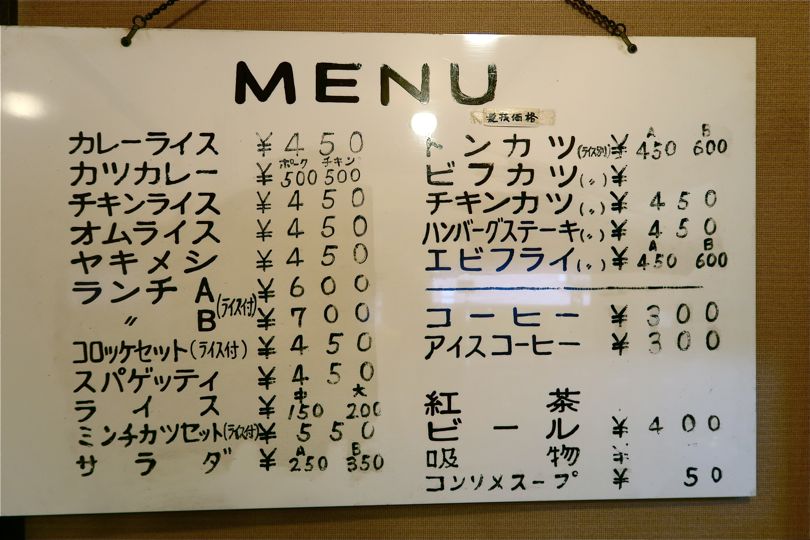 MENU
税抜価格
カレーライス ¥450
ポーク チキン
カツカレー ¥500 500
チキンライス ¥450
オムライス ¥450
ヤキメシ ¥450
ランチ A (ライス付) ¥600
〃 B ¥700
コロッケセット(ライス付) ¥450
スパゲッティ ¥450
中 大
ライス ¥150 200
ミンチカツセット(ライス付) ¥550
A B
サラダ ¥250 350
A B
トンカツ(ライス別) ¥450 600
ビフカツ(〃) ¥
チキンカツ(〃) ¥450
ハンバーグステーキ(〃) ¥450
A B
エビフライ(〃) ¥450 600
コーヒー ¥300
アイスコーヒー ¥300
紅茶
ビール ¥400
吸物 ¥
コンソメスープ ¥50